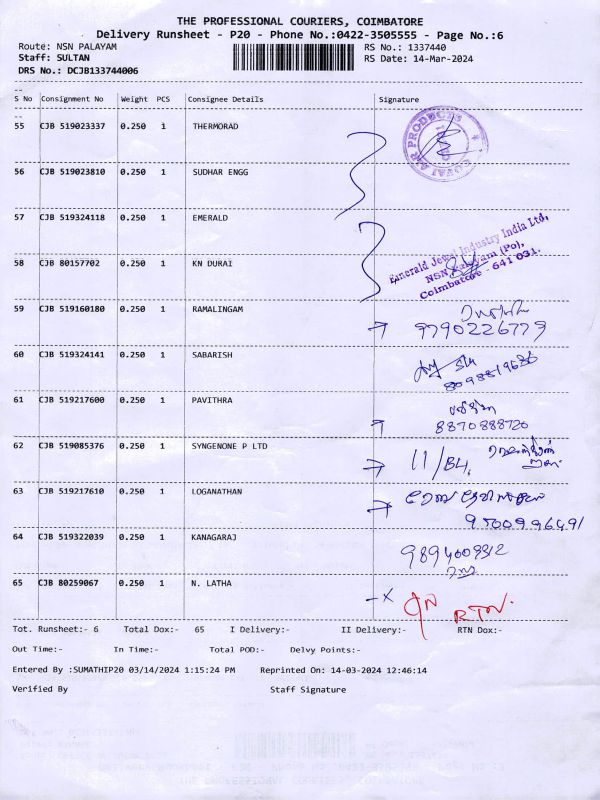 THE PROFESSIONAL COURIERS, COIMBATORE
Delivery Runsheet - P20 - Phone No.:0422-3505555 - Page No.:6
Route: NSN PALAYAM RS No.: 1337440
Staff: SULTAN RS Date: 14-Mar-2024
DRS No.: DCJB133744006
--
S No Consignment No Weight PCS Consignee Details Signature
--
55 CJB 519023337 0.250 1 THERMORAD
56 CJB 519023810 0.250 1 SUDHAR ENGG
57 CJB 519324118 0.250 1 EMERALD
Emerald Jewel Industry India Ltd,
58 CJB 80157702 0.250 1 KN DURAI
NSN Palayam (Po),
Coimbatore - 641 031.
59 CJB 519160180 0.250 1 RAMALINGAM
9790226779
60 CJB 519324141 0.250 1 SABARISH
8098819686
61 CJB 519217600 0.250 1 PAVITHRA
8870888720
62 CJB 519085376 0.250 1 SYNGENONE P LTD
63 CJB 519217610 0.250 1 LOGANATHAN
9500996491
64 CJB 519322039 0.250 1 KANAGARAJ
9894009312
65 CJB 80259067 0.250 1 N. LATHA
RTN.
Tot. Runsheet:- 6 Total Dox:- 65 I Delivery:- II Delivery:- RTN Dox:-
Out Time:- In Time:- Total POD:- Delvy Points:-
Entered By :SUMATHIP20 03/14/2024 1:15:24 PM Reprinted On: 14-03-2024 12:46:14
Verified By Staff Signature